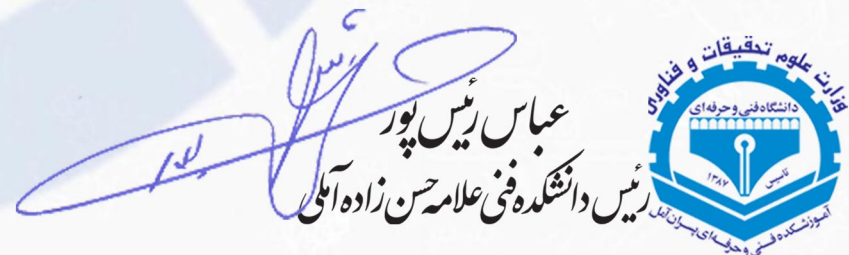 عباس رئیس پور
رئیس دانشکده فنی علامه حسن زاده آملی
وزارت علوم تحقیقات و فناوری
دانشگاه فنی و حرفه‌ای
تاسیس ۱۳۸۷
آموزشکده فنی و حرفه‌ای پسران آمل